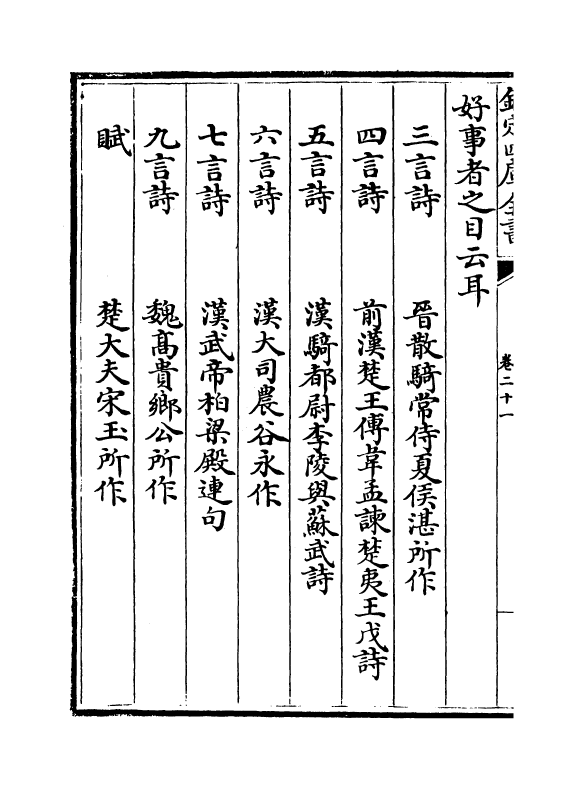 欽定四庫全書
卷二十一
好事者之目云耳
三言詩 晉散騎常侍夏侯湛所作
四言詩 前漢楚王傅韋孟諫楚夷王戊詩
五言詩 漢騎都尉李陵與蘇武詩
六言詩 漢大司農谷永作
七言詩 漢武帝柏梁殿連句
九言詩 魏髙貴鄉公所作
賦 楚大夫宋玉所作